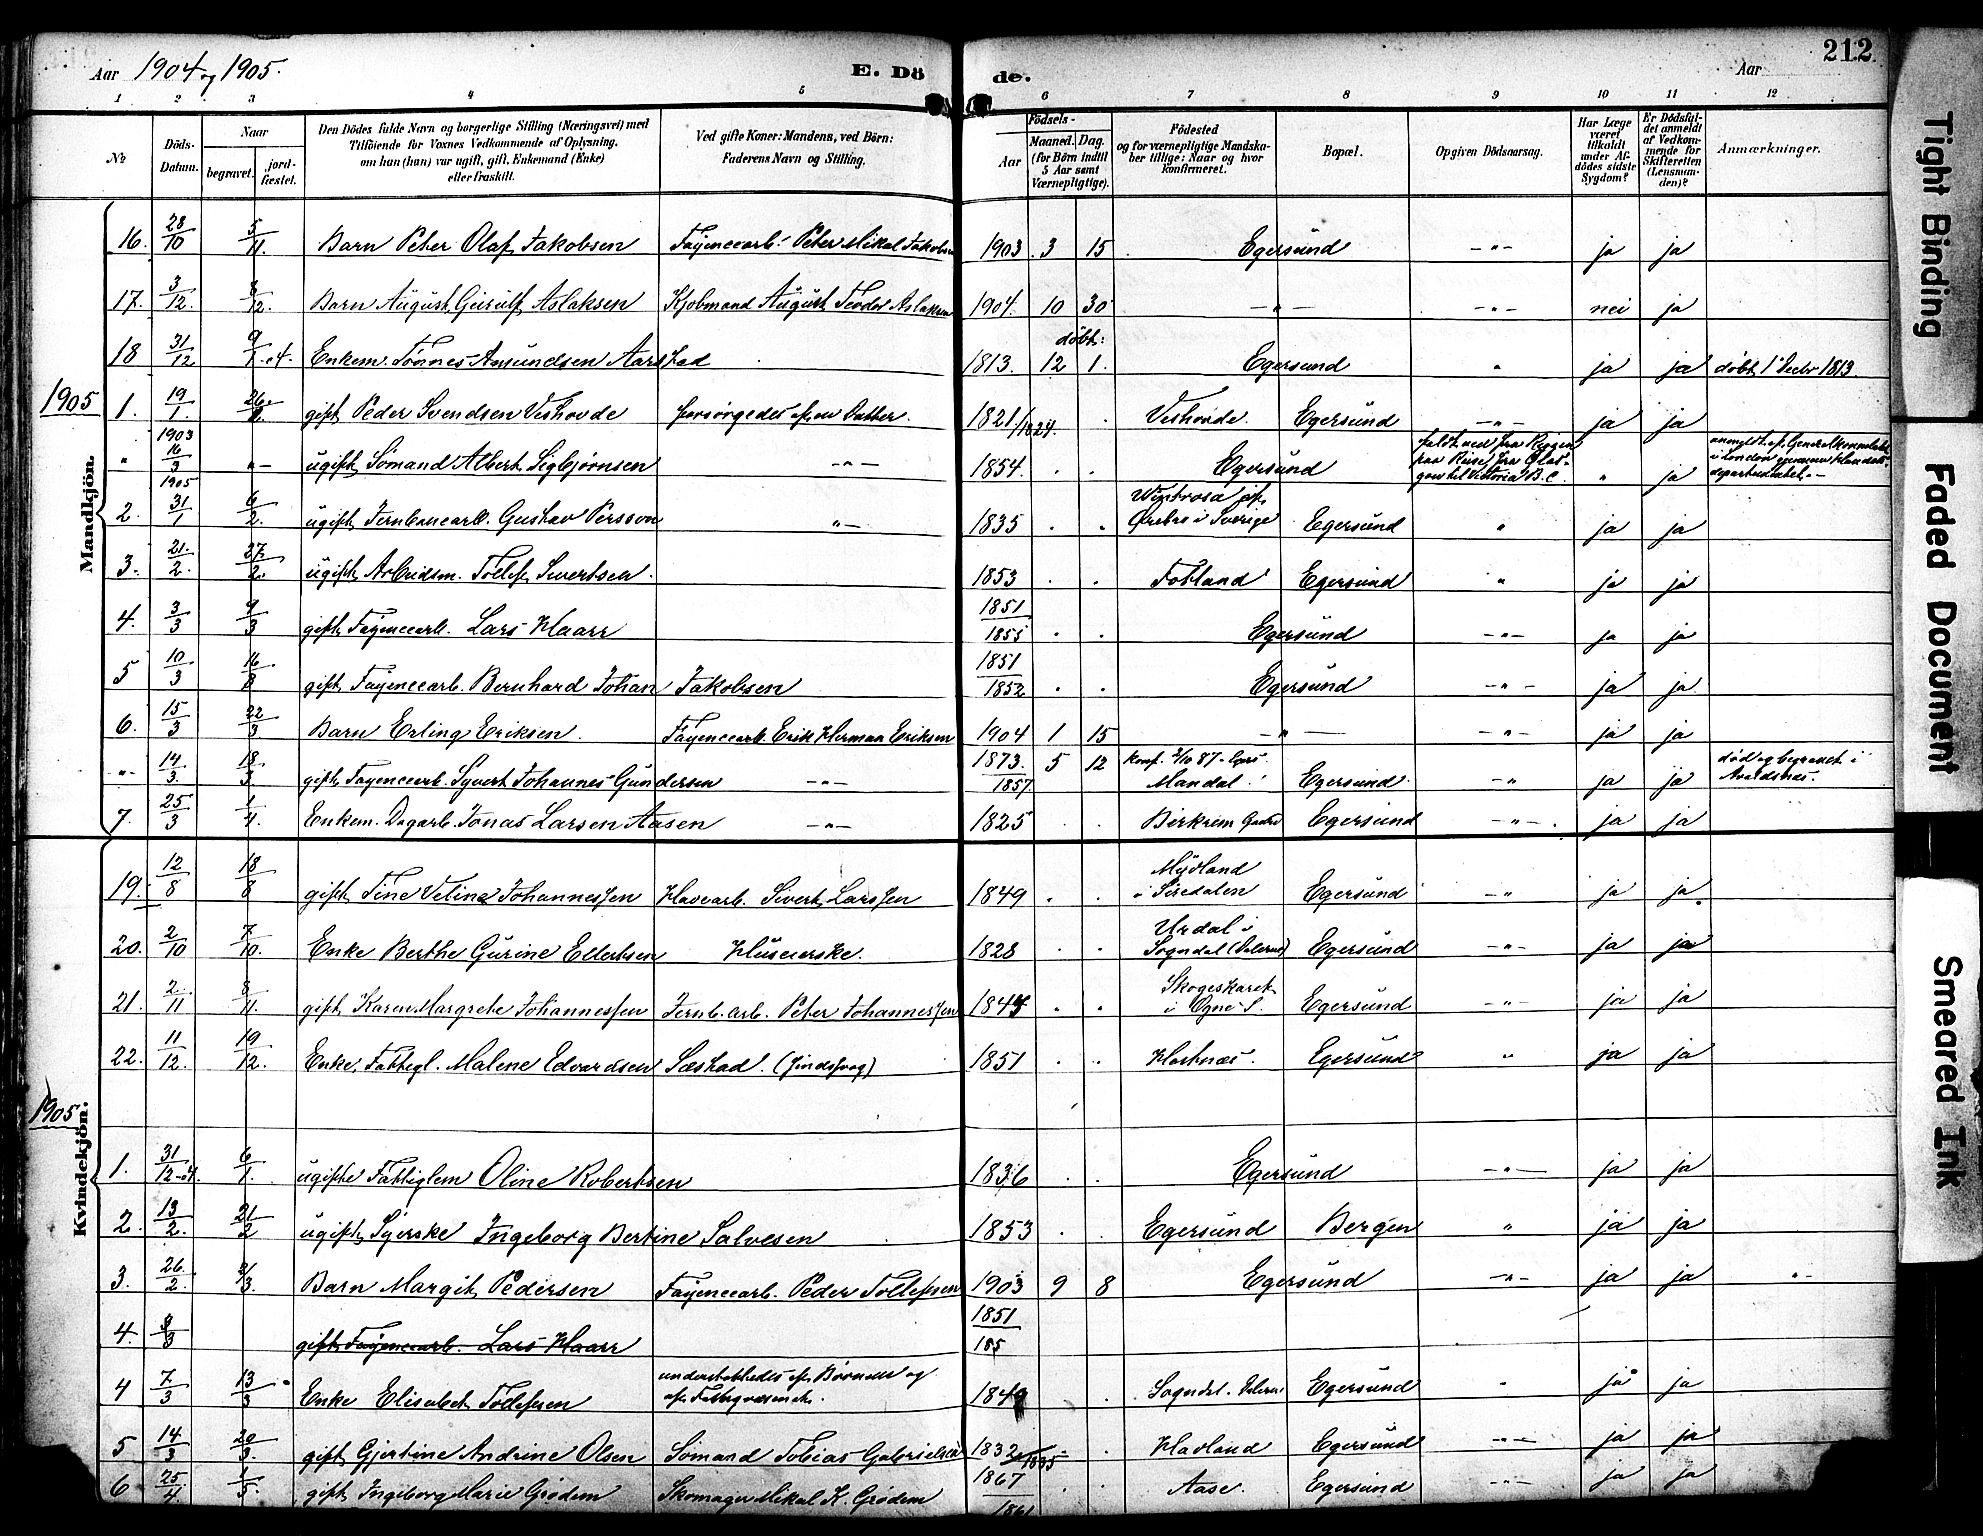 Aar 1904 og 1905. E. Dö de. Aar 212
1 2 3 4 5 6 7 8 9 10 11 12
No
Döds-Datum.
Naar begravet. jordfæstet.
Den Dödes fulde Navn og borgerlige Stilling (Næringsvei) med Tilföiende for Voxnes Vedkommende af Oplysning. om han (hun) var ugift, gift, Enkemand (Enke) eller fraskilt.
Ved gifte Koner: Mandens, ved Börn: Faderens Navn og Stilling.
Födsels- Aar Maaned. Dag. (for Börn indtil 5 Aar samt Værnepligtige).
Födested og for værnepligtige Mandskaber tillige: Naar og hvor konfirmeret.
Bopæl.
Opgiven Dödsaarsag.
Har Læge været tilkaldt under Afdödes sidste Sygdom?
Er Dödsfaldet anmeldt af Vedkommende for Skifteretten (Lensmanden)?
Anmærkninger.
Mandkjön.
16. 28/10 5/11. Barn Peter Olaf Jakobsen Fayencearb. Peter Mikal Jakobsen 1903 3 15 Egersund -"- ja ja
17. 3/12. 8/12. Barn August Geirulf Aslaksen Kjøbmand August Teodor Aslaksen 1904. 10 30 -"- -"- nei ja
18 31/12 9/1. Enkem. Tönnes Amundsen Aarstad 1813. 12 1. döbt: Egersund " ja ja döbt 1 Decbr 1813.
1905
1. 19/1. gift Peder Svendsen Veshovde forsörgedes af en Datter. 1821/1824. Veshovde. Egersund -"- ja ja
" 1903 16/3 "- ugift Sömand Albert Sigbjörnsen -"- 1854. Egersund faldt ned fra Riggen paa Reise fra til Victoria B.C. " ja anmeldt af Generalkonsulatet i London gjennem Handelsdepartementet.
2. 1905 31/1 6/2. ugift Jernbanearb. Gustav Persson -"- 1835 Wintrosa pr. Örebro i Sverige Egersund " ja ja
3. 21./2. 27./2. ugift Arbeidsm. Tollef Sivertsen. 1853 Fotland Egersund " ja ja
4. 3/3 9/3 gift Fayencearb. Lars Haarr 1851/1855 Egersund -"- ja ja
5 10/3 16/3 gift Fayencearb. Bernhard Johan Jakobsen 1851/1852 Egersund -"- ja ja
6. 15/3 22/3 Barn Erling Eriksen. Fayencearb. Erik Herman Eriksen 1904 1 15 -"- -"- ja ja
-"- 14/3. 18/3 gift Fayencearb. Syvert Johannes Gundersen -"- 1873./1857. 5 12 Konf. 2/10 87 Mandal. Egersund. -"- ja ja död og begravet i Avaldsnes.
7. 25/3 1/4. Enkem. Dagarb. Jonas Larsen Aasen -"- 1825 Birkrem Egersund -"- ja ja
Kvindekjön.
19. 12/8 18/8 gift Tine Veline Johannessen Havearb. Sivert Larssen 1849 Mydland i Siredalen Egersund -"- ja ja
20. 2/10 7/10. Enke Berthe Gurine Ellertsen Husmerske. 1828 Urdal i Sogndal (Dalerne) Egersund -"- ja ja
21. 2./11 8/11. gift Karen Margrethe Johannessen Jernb. arb. Peter Johannessen 1844 i Ogne S. Egersund -"- ja ja
22. 11/12. 19/12. Enke, Fattigl. Malene Edvardsen Sæstad. 1851 Egersund " ja ja
1905
1. 31/12-04. 6/1. ugifte Fattiglem Oline Robertsen 1836 Egersund -"- ja ja
2. 13/2. 21/2 ugift Syerske Ingeborg Bertine Salvesen 1853 Egersund Bergen " ja ja
3. 26./2. 2/3. Barn Margit Pedersen Fayencearb. Peder Tollefsen 1903 9 8 Egersund -"- ja ja "-
4. 3/3 gift Fayencearb. Lars Haarr 1851/185
4 7/3 13/3 Enke Elisabet Tollefsen understöttedes af Börnene og af Fattigvæsenet. 1849 Sogndal. Dalerne Egersund " ja ja
5 14/3 20/3. gift Gjertine Andrine Olsen Sömand Tobias Gabrielsen 1832/1835 Havland Egersund -"- ja ja
6 25/4 1/5 gift Ingeborg Marie Grödem Skomager Mikal K. Grödem 1867/1861 Aase. Egersund -"- ja ja
Tight Binding
Faded Document
Smeared Ink